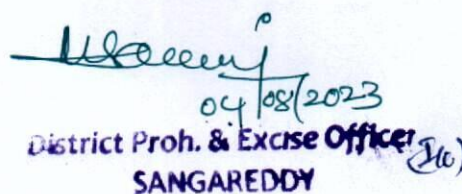 04/08/2023
District Proh. & Excise Officer
SANGAREDDY